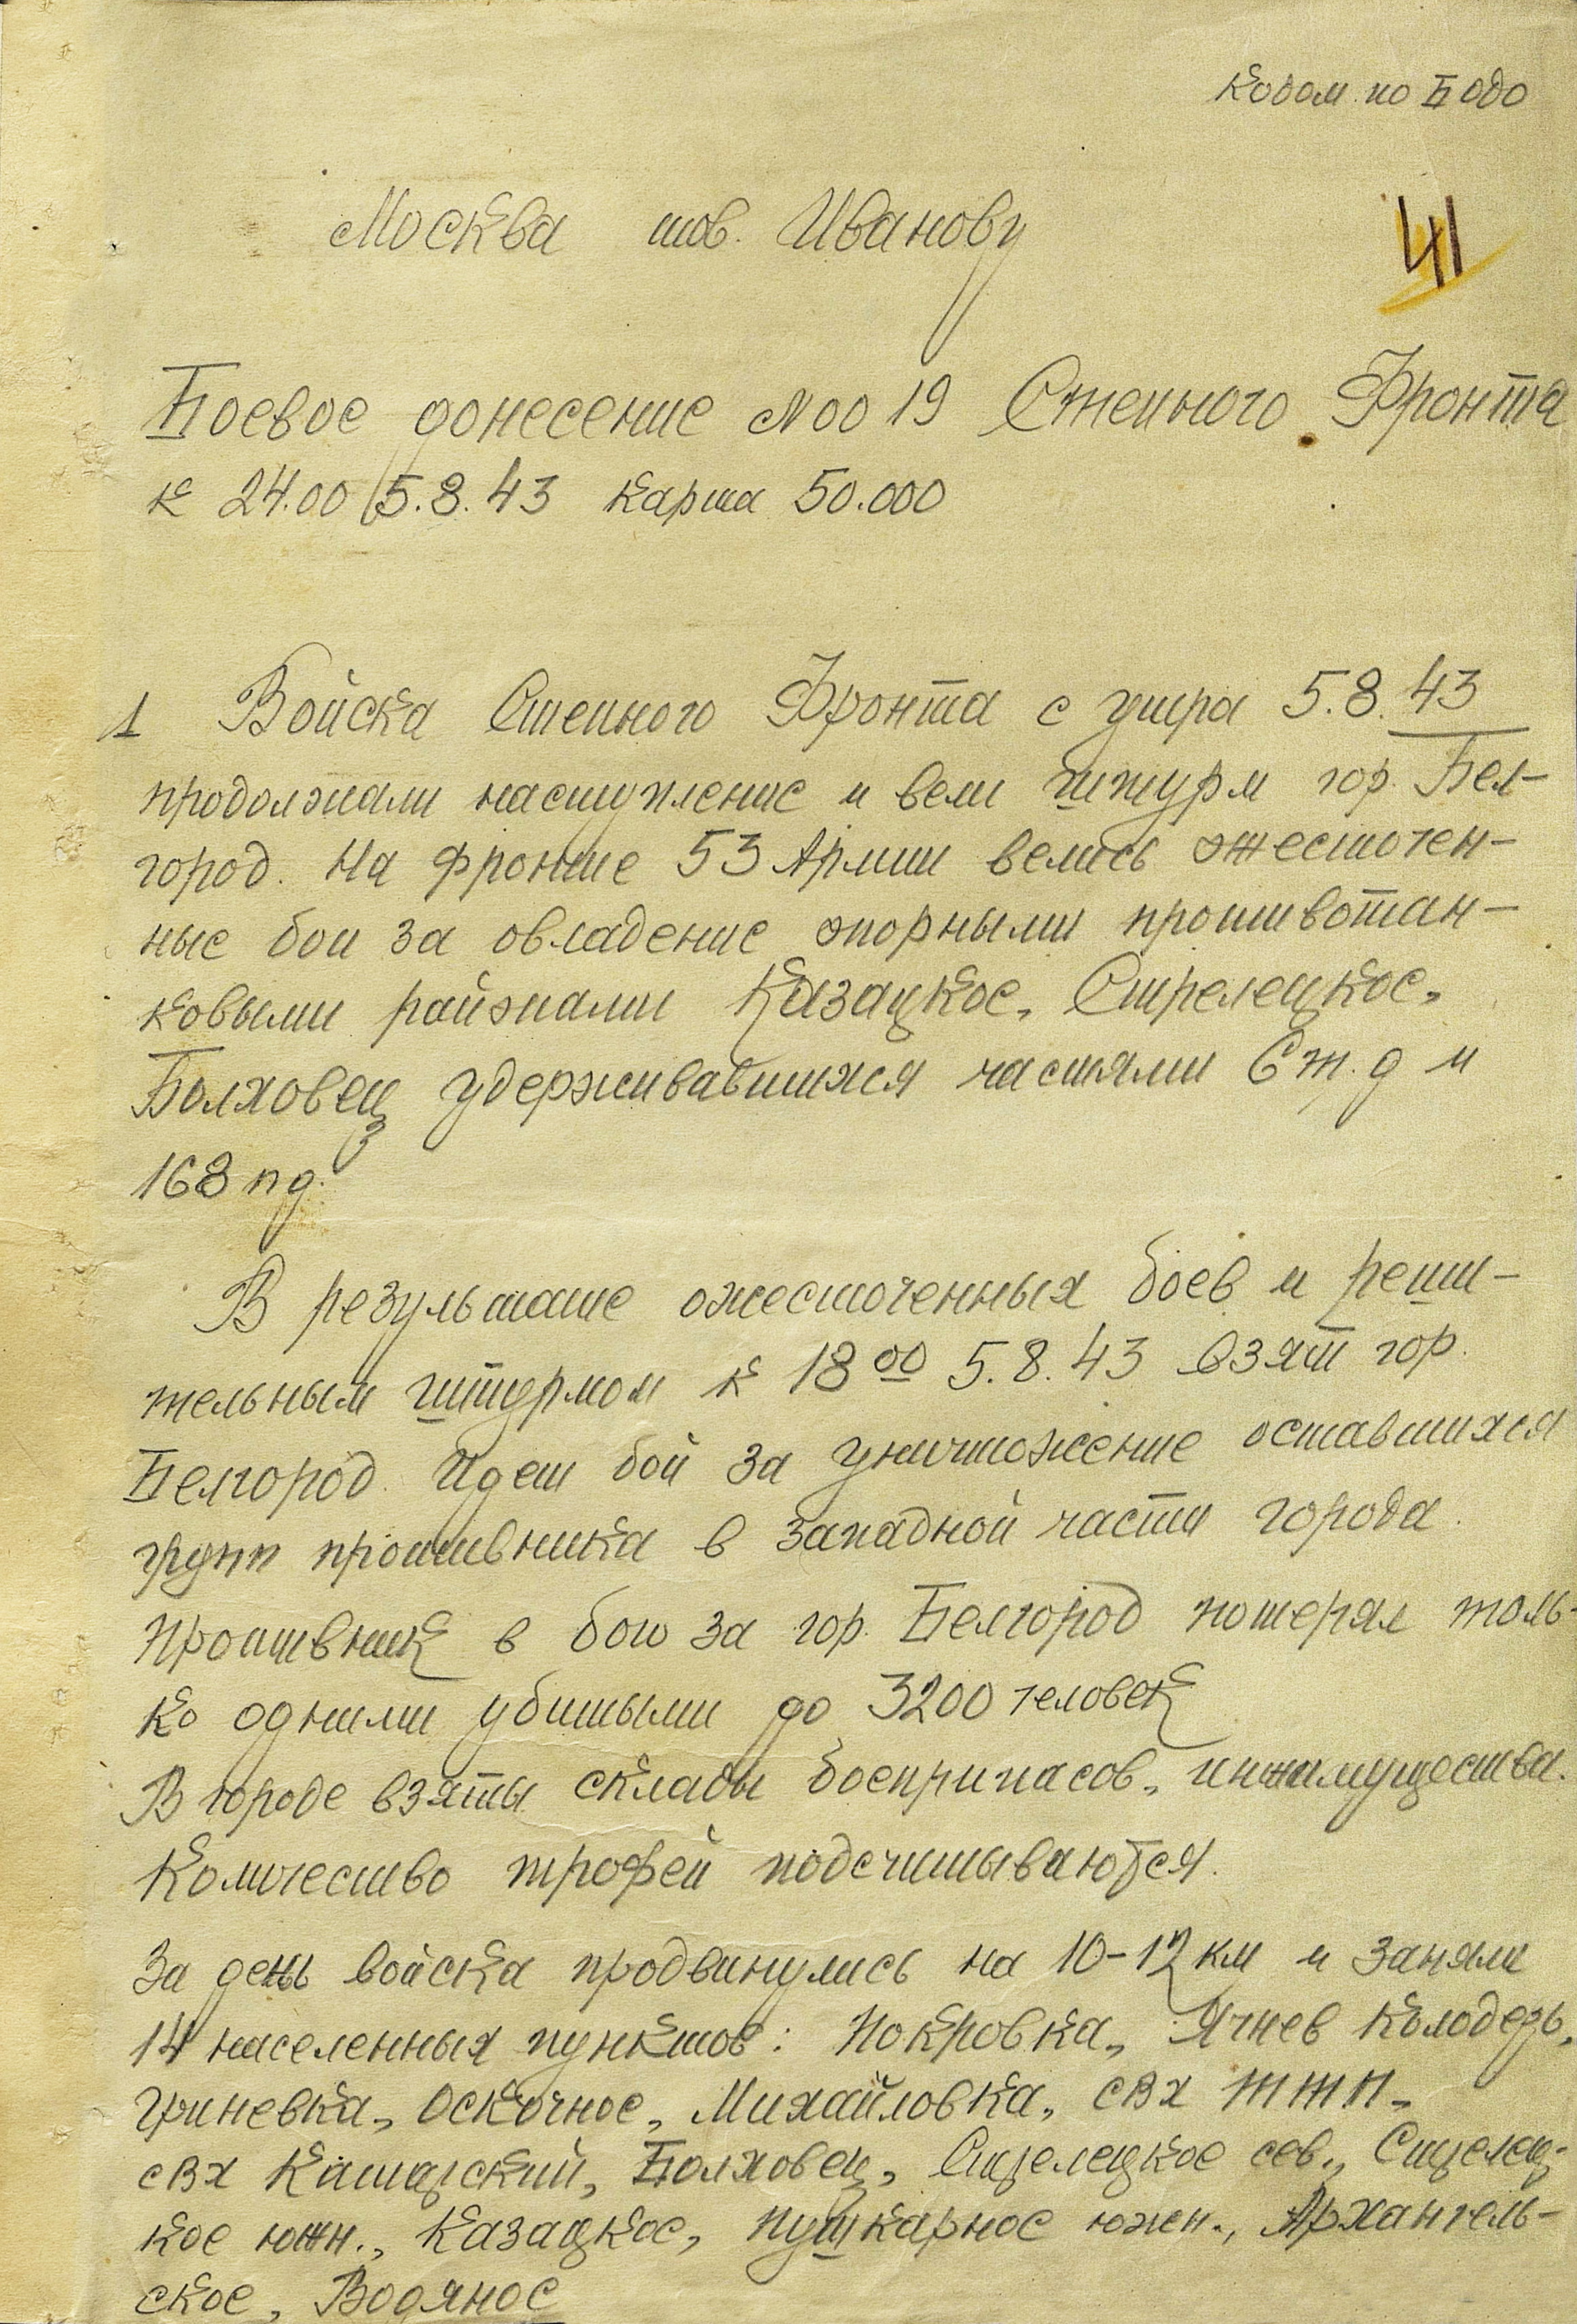 Кодом по Бодо
Москва тов. Иванову
41
Боевое донесение №0019 Степного Фронта
к 24.00 5.8.43 карта 50.000
1 Войска Степного Фронта с утра 5.8.43
продолжали наступление и вели штурм гор. Бел-
город. На фронте 53 Армии велись ожесточен-
ные бои за овладение опорными противотан-
ковыми районами Казацкое, Стрелецкое,
Болховец удерживавшихся частями 6 т.д и
168 пд.
В результате ожесточенных боев и реши-
тельным штурмом к 18 00 5.8.43 взят гор.
Белгород. Идет бой за уничтожение оставшихся
групп противника в западной части города.
Противник в бою за гор. Белгород потерял толь-
ко одними убитыми до 3200 человек
В городе взяты склады боеприпасов, инжимущества.
Количество трофей подсчитываются.
За день войска продвинулись на 10-12 км и заняли
14 населенных пунктов: Покровка, Ячнев Колодезь,
Гриневка, Оскочное, Михайловка, свх ТТП,
свх Кашарский, Болховец, Стрелецкое сев., Стрелец-
кое южн., Казацкое, Пушкарное южн., Архангель-
ское, Водяное